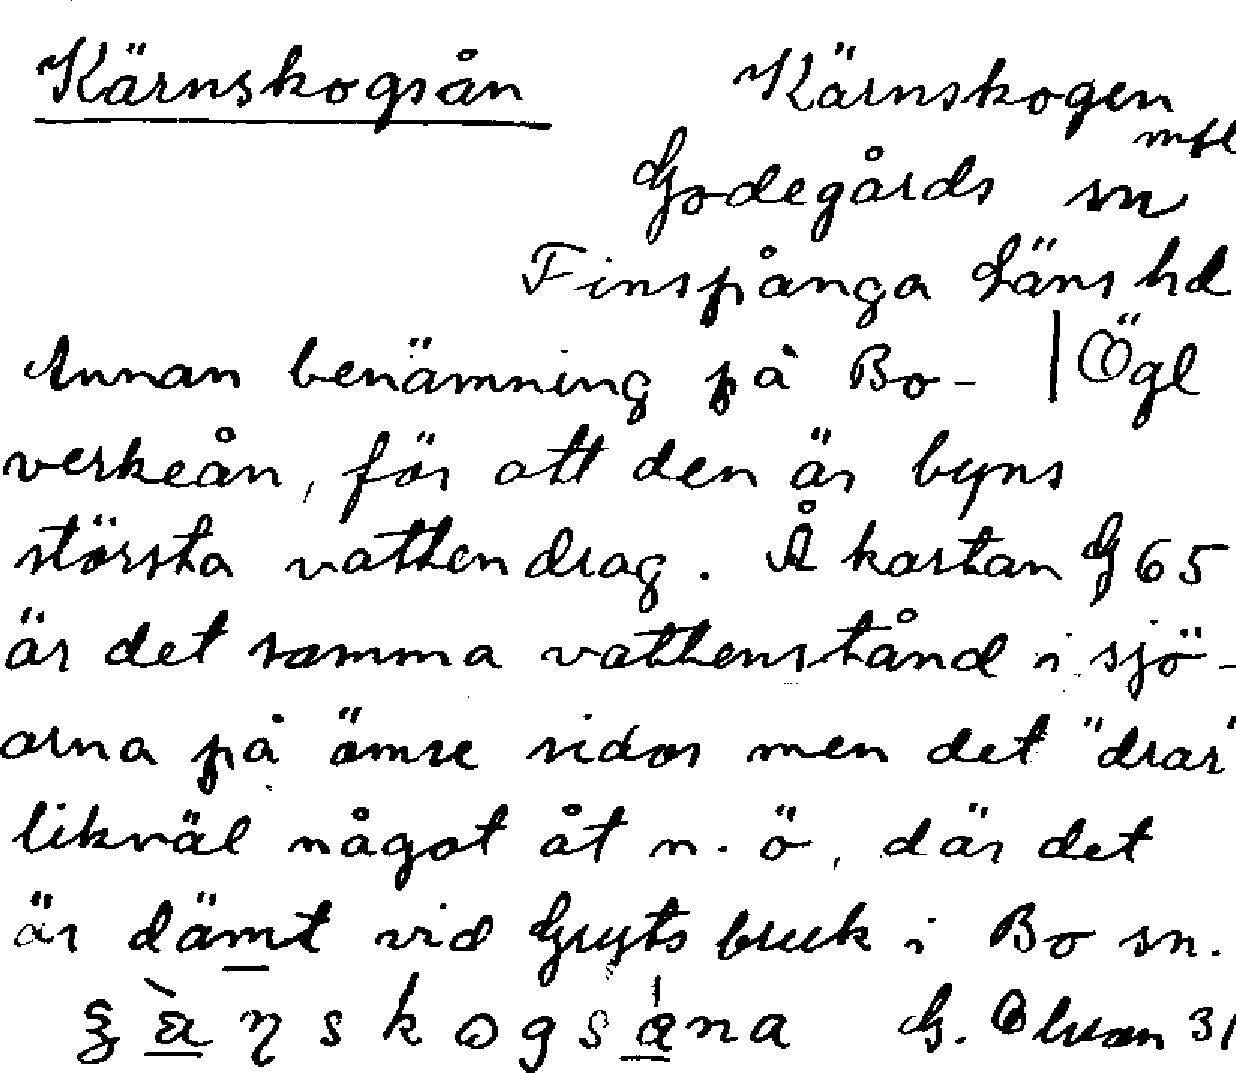 Kärnskogsån Kärnskogen
mfl
Godegårds sn
Finspånga Läns hd
Annan benämning på Bo- | Ögl
verkeån, för att den är byns
största vattendrag. Å kartan G 65
är det samma vattenstånd i sjö-
arna på ömse sidor men det "drar"
likväl något åt n. ö, där det
är dämt vid Gryts bruk i Bo sn.
G. Olsson 31